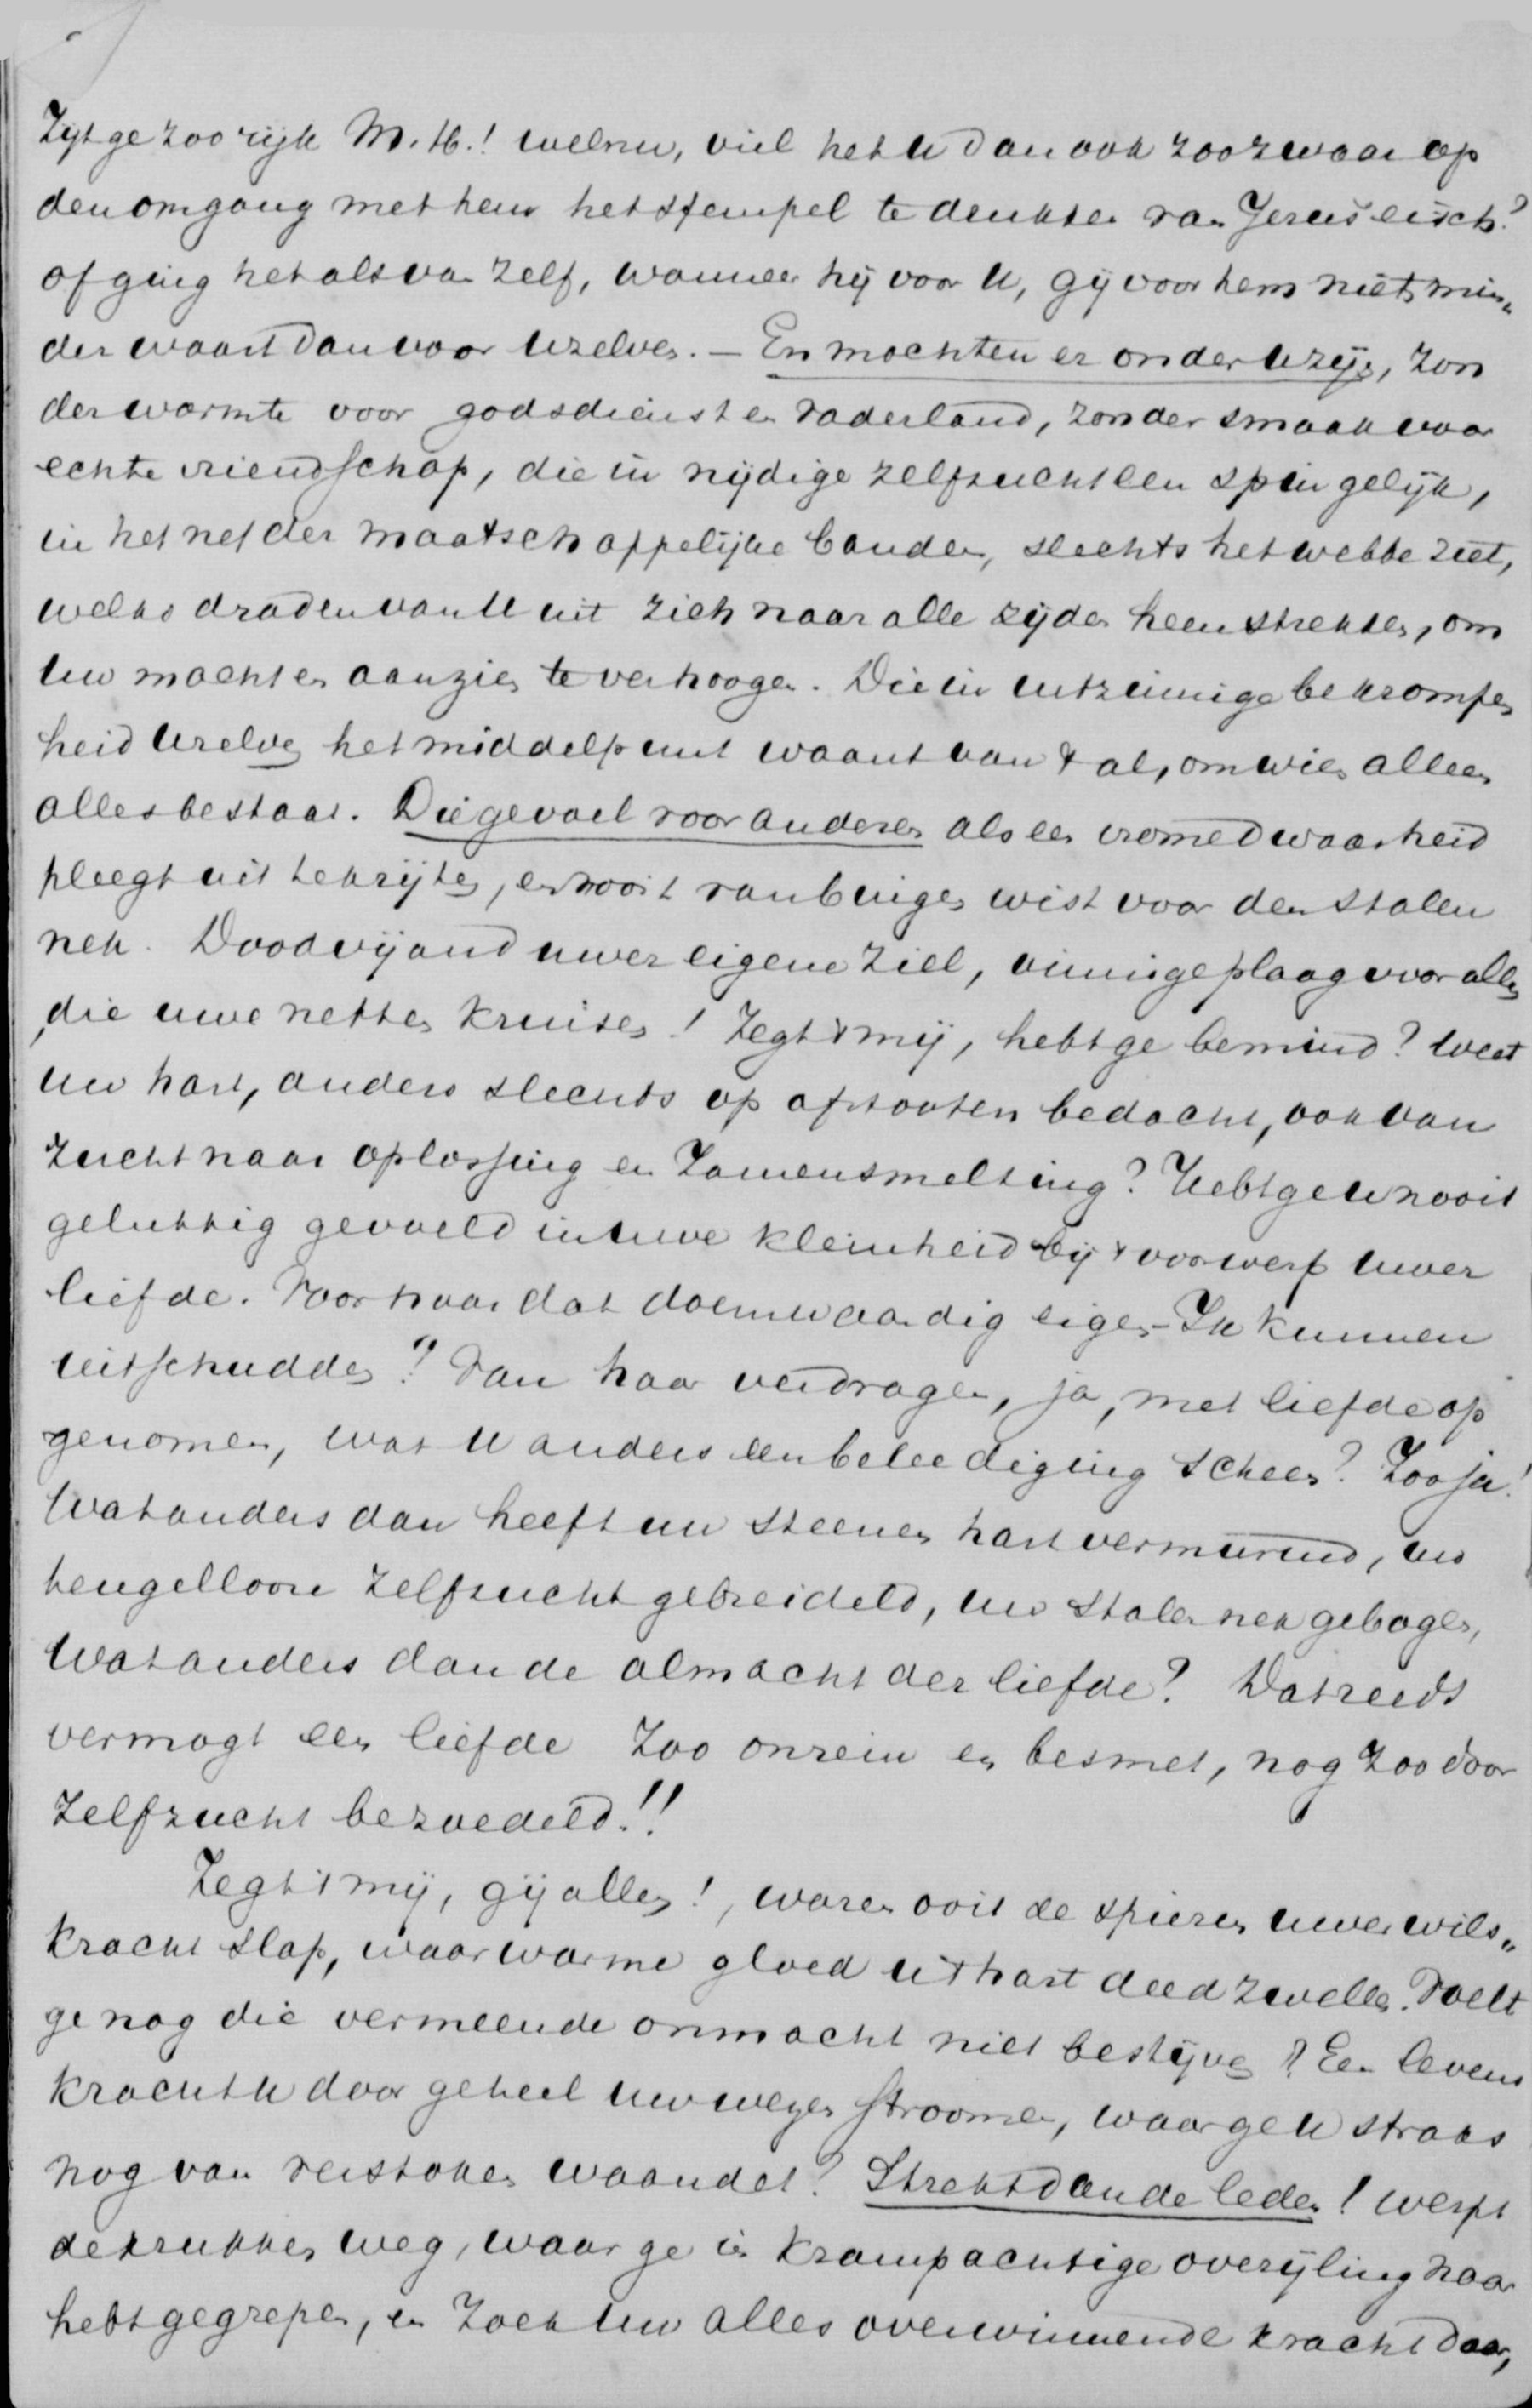 Zijt ge zoo rijk M. H.! welnu, viel het u dan ook zoo zwaar op
den omgang met hem het stempel te drukken van Jezus eisch?
of ging het als van zelf, wanneer hij voor U, gij voor hem niets min„
der waart dan voor uzelven. — En mochten er onder u zijn, zon
der warmte voor godsdienst en vaderland, zonder smaak voor
echte vriendschap, die in nijdige zelfzucht een spin gelijk,
in het net der maatschappelijke banden, slechts het webbe ziet,
welks draden van U uit zich naar alle zijden heen strekken, om
uw macht en aanzien te verhoogen. Die in uitzinnige bekrompen
heid uzelven het middelpunt waant van 't al, om wien alleen
alles bestaat. Die gevoel voor anderen als een vromed waasheid
pleegt uit te krijten, en nooit van buigen wist voor den stalen
nek. Doodvijand uwer eigene ziel, vinnige plaag voor allen
die uwe netten kruisen! Zegt 't mij, hebt ge bemind? Weet
uw hart, anders slechts op afstooten bedacht, ook van
zucht naar oplossing en Zamensmelting? Hebt ge u nooit
gelukkig gevoeld in uwe kleinheid bij 't voorwerp uwer
liefde. Voor haar dat doemwaardig eigen-Ik kunnen
uitschudden? Van haar verdragen, ja, met liefde op
genomen, wat U anders een beleediging scheen? Zoo ja!
Wat anders dan heeft uw steenen hart vermurwd, uw
teugelloose zelfzucht gebreideld, uw stalen nek gebogen,
Wat anders dan de almacht der liefde? Dat reeds
vermogt een liefde zoo onrein en besmet, nog zoo door
zelfzucht bezoedeld!!
Zegt 't mij, gij allen!, waren ooit de spieren uwer wils„
kracht slap, waar warme gloed u 't hart deed zwellen. Voelt
ge nog die vermeende onmacht niet bestijven? Een levens
kracht U door geheel uw wezen stroomen, waar ge u straks
nog van verstoken waandet? Strekt dan de leden! werpt
de krukken weg, waar ge in krampachtige overijling naar
hebt gegrepen, en zoek uw alles overwinnende kracht daar,